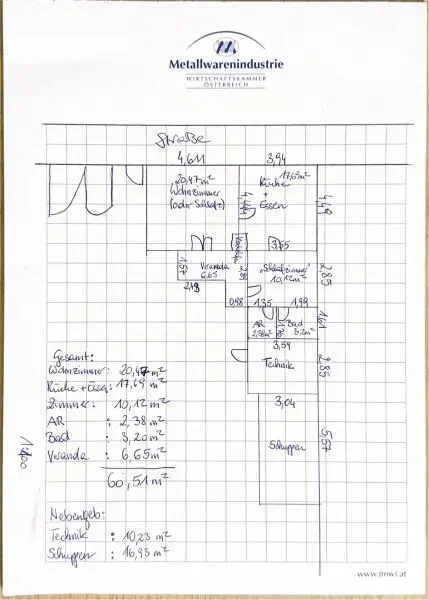 Metallwarenindustrie
WIRTSCHAFTSKAMMER
ÖSTERREICH
Straße
4,611 3,94
20,47m² 17,69m²
Wohnzimmer Küche
(oder Schlafz) + Essen
4,44 4,49
3,55
1,57 Veranda 6,65 2,89 "Schlafzimmer" 10,12m² 2,85
2,48
0,98 1,35 1,99 1,61
AR Bad
2,38m² 3,2m²
3,59
Technik 2,85
3,04
Schuppen 5,57
1:100
Gesamt:
Wohnzimmer: 20,47 m²
Küche + Essen: 17,69 m²
Zimmer: 10,12 m²
AR : 2,38 m²
Bad : 3,20 m²
Veranda : 6,65 m²
60,51 m²
Nebengeb:
Technik : 10,23 m²
Schuppen : 16,93 m²
www.fmwi.at